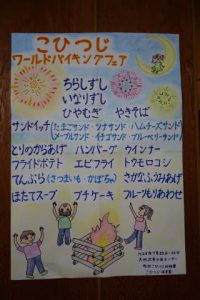 こひつじ
ワールドバイキングフェア
ちらしずし
いなりずし
ひやむぎ　やきそば
サンドイッチ(たまごサンド・ツナサンド・ハムチーズサンド)
メープルサンド・イチゴサンド・ブルーベリーサンド
とりのからあげ　ハンバーグ　ウインナー
フライドポテト　エビフライ　トウモロコシ
てんぷら(さつまいも・かぼちゃ)　さかなふうみあげ
ほたてスープ　プチケーキ　フルーツもりあわせ